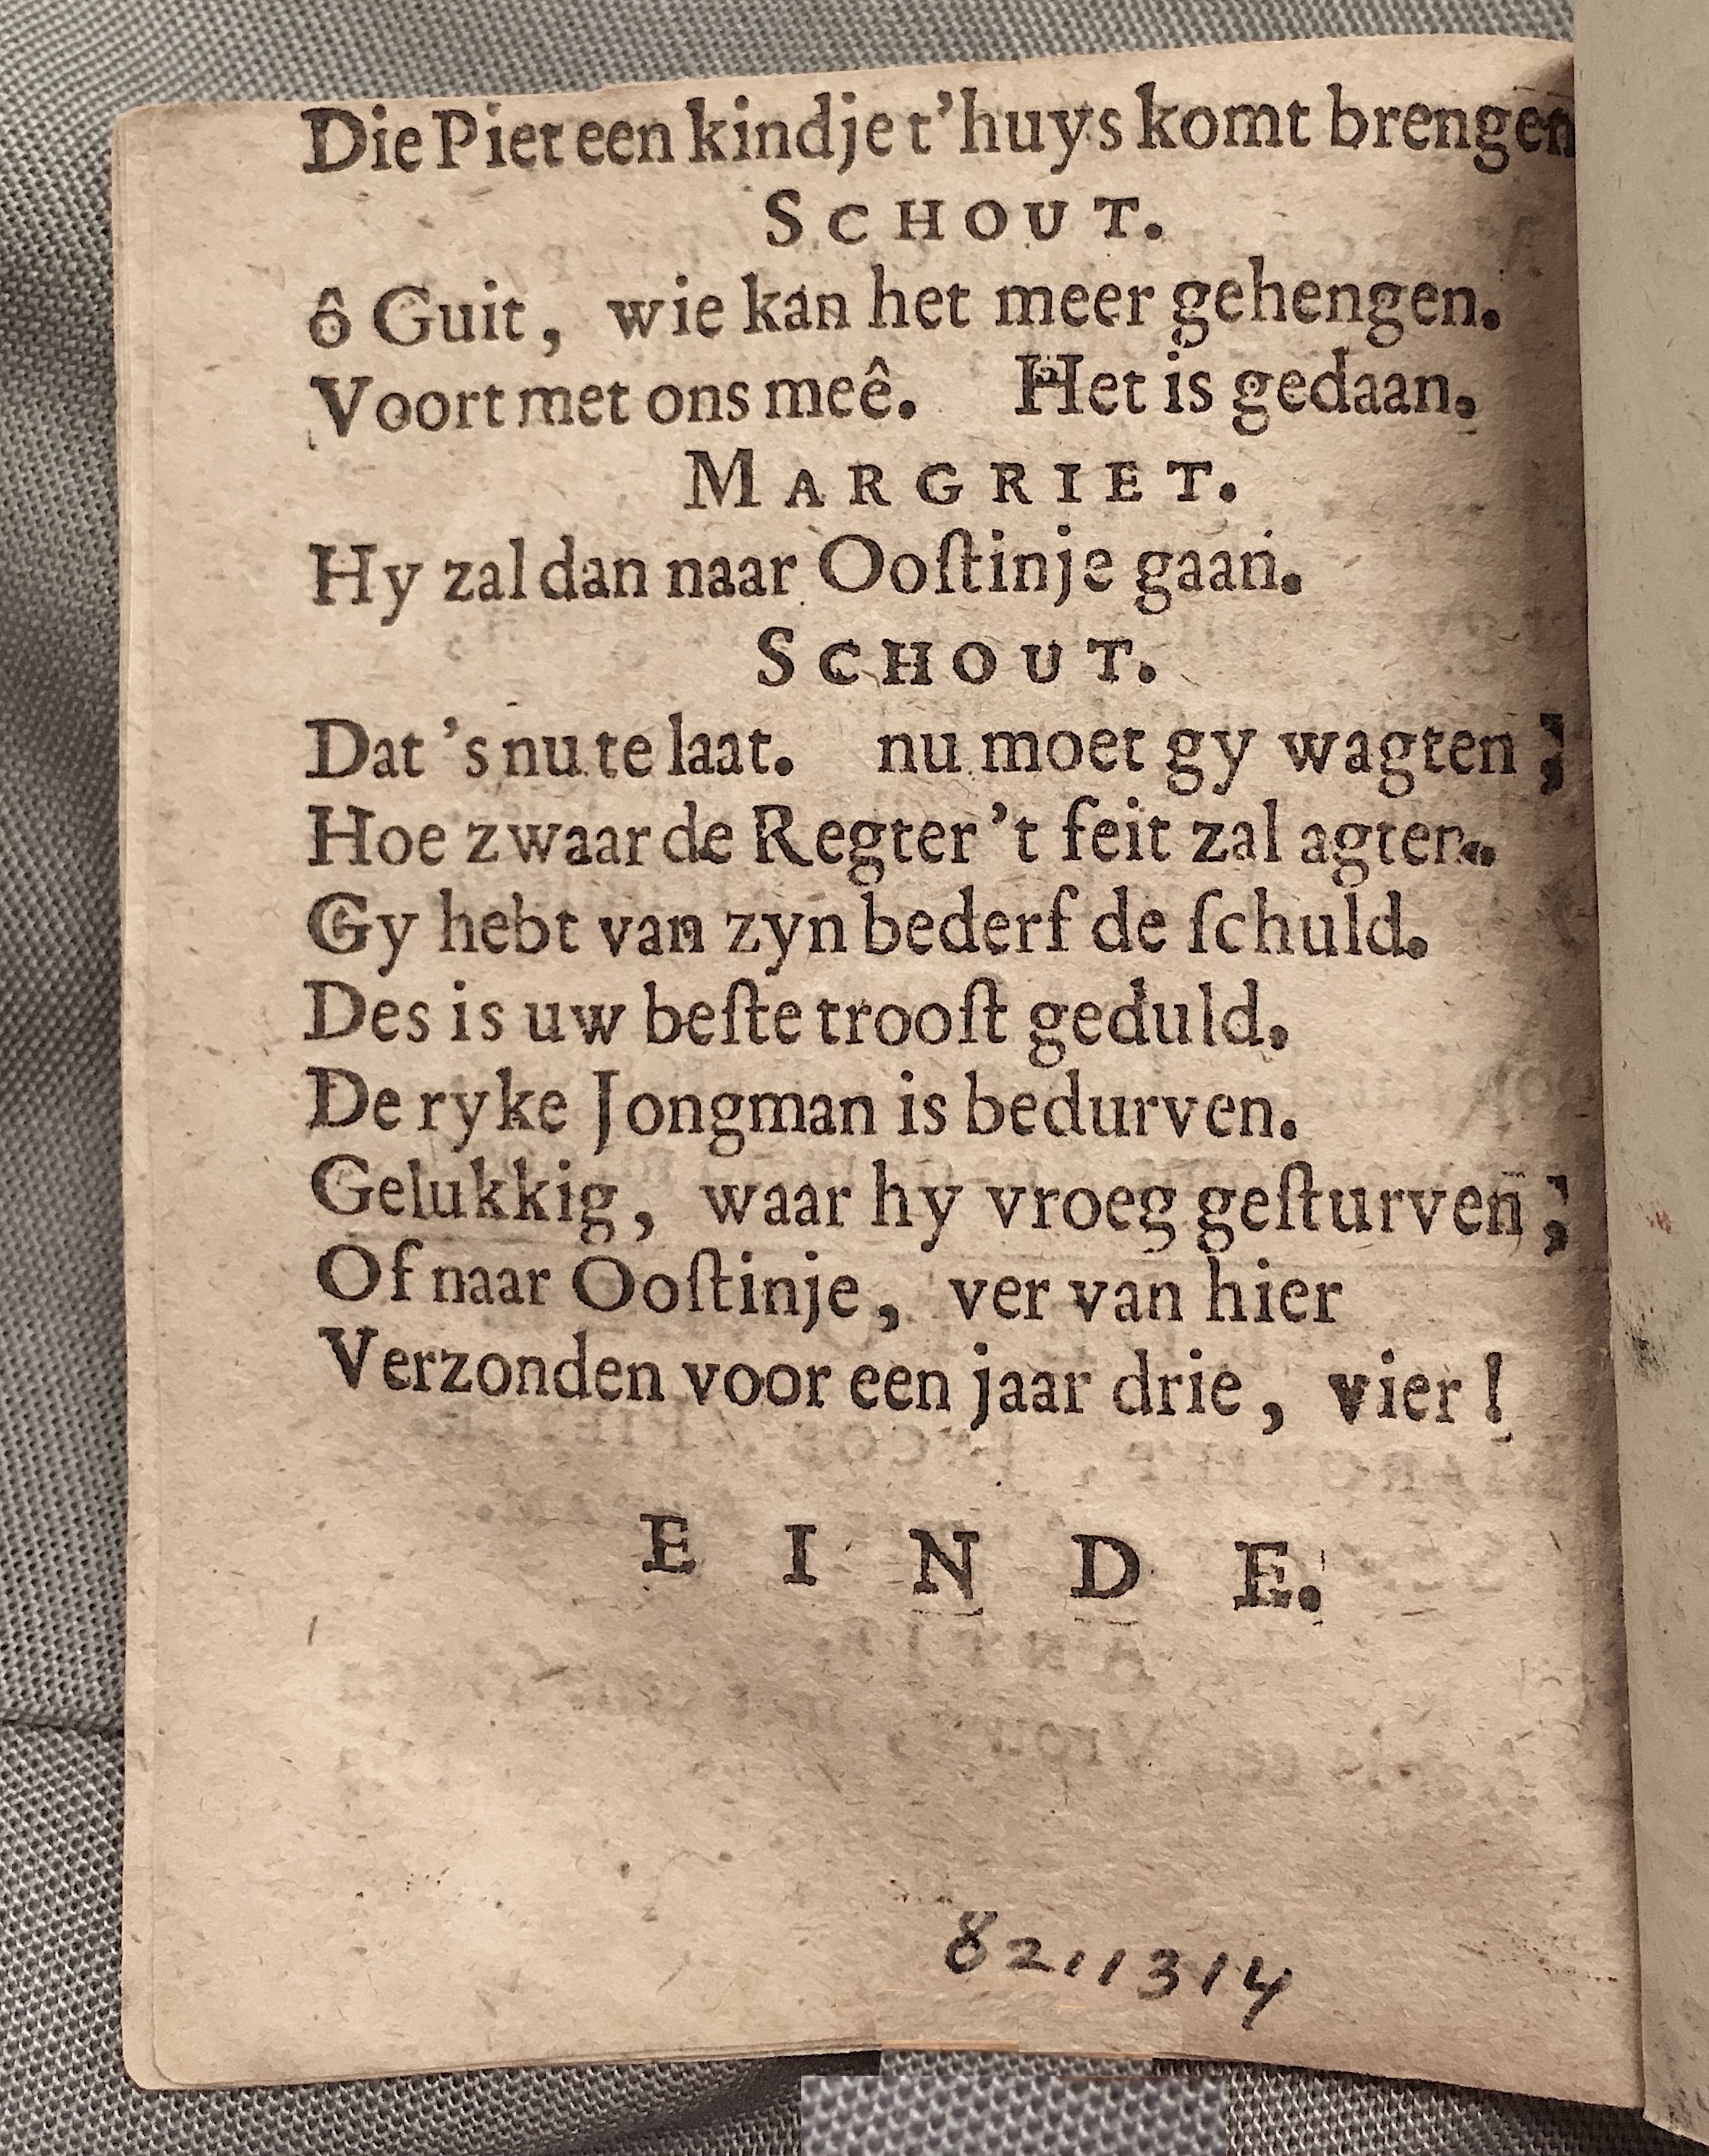 Die Piet een kindje t'huys komt brengen
SCHOUT.
ô Guit, wie kan het meer gehengen.
Voort met ons meê. Het is gedaan.
MARGRIET.
Hy zal dan naar Ooſtinje gaan.
SCHOUT.
Dat 's nu te laat. nu moet gy wagten;
Hoe zwaar de Regter 't feit zal agten.
Gy hebt van zyn bederf de ſchuld.
Des is uw beſte trooſt geduld.
De ryke Jongman is bedurven.
Gelukkig, waar hy vroeg geſturven;
Of naar Ooſtinje, ver van hier
Verzonden voor een jaar drie, vier!
EINDE.
8211314